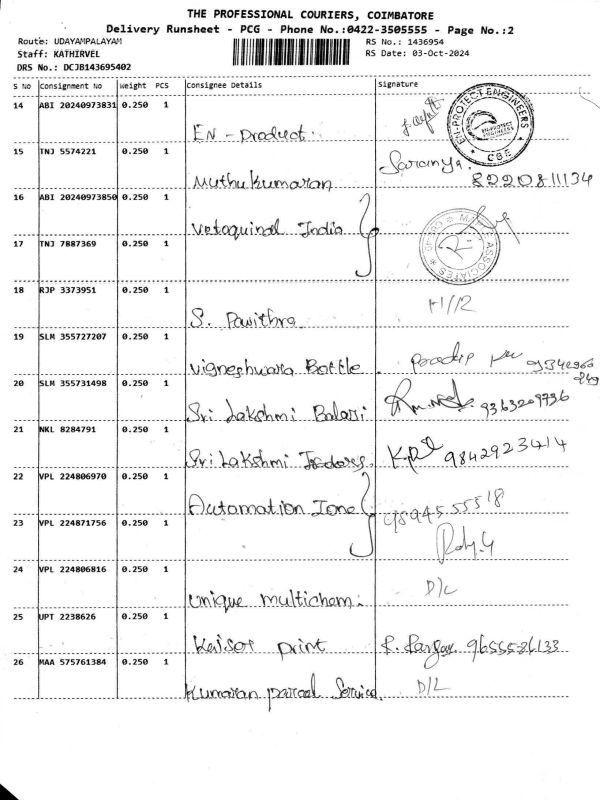 THE PROFESSIONAL COURIERS, COIMBATORE
Delivery Runsheet - PCG - Phone No.:0422-3505555 - Page No.:2
Route: UDAYAMPALAYAM RS No.: 1436954
Staff: KATHIRVEL RS Date: 03-Oct-2024
DRS No.: DCJB143695402
S No Consignment No Weight PCS Consignee Details Signature
14 ABI 20240973831 0.250 1
EN - Product.
EN-PROTECT ENGINEERS
EN-PROTECT ENGINEERS
CBE
15 TNJ 5574221 0.250 1 Saranya.
Muthukumaran 8220811134
16 ABI 20240973850 0.250 1
Vetoquinal India
ASSOCIATES
17 TNJ 7887369 0.250 1
18 RJP 3373951 0.250 1
S. Pavithra
19 SLM 355727207 0.250 1
Vigneshwara Bottle
20 SLM 355731498 0.250 1
Sri Lakshmi Balaji 9363209736
21 NKL 8284791 0.250 1
Sri Lakshmi 9842923414
22 VPL 224806970 0.250 1
Automation Zone 9894555518
23 VPL 224871756 0.250 1
24 VPL 224806816 0.250 1 D/L
Unique multichem.
25 UPT 2238626 0.250 1
Kaiser print 9655586133
26 MAA 575761384 0.250 1 D/L
Kumaran parcel Service.